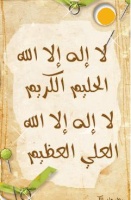 لا إله إلا الله
الحليم الكريم
لا إله إلا الله
العلي العظيم